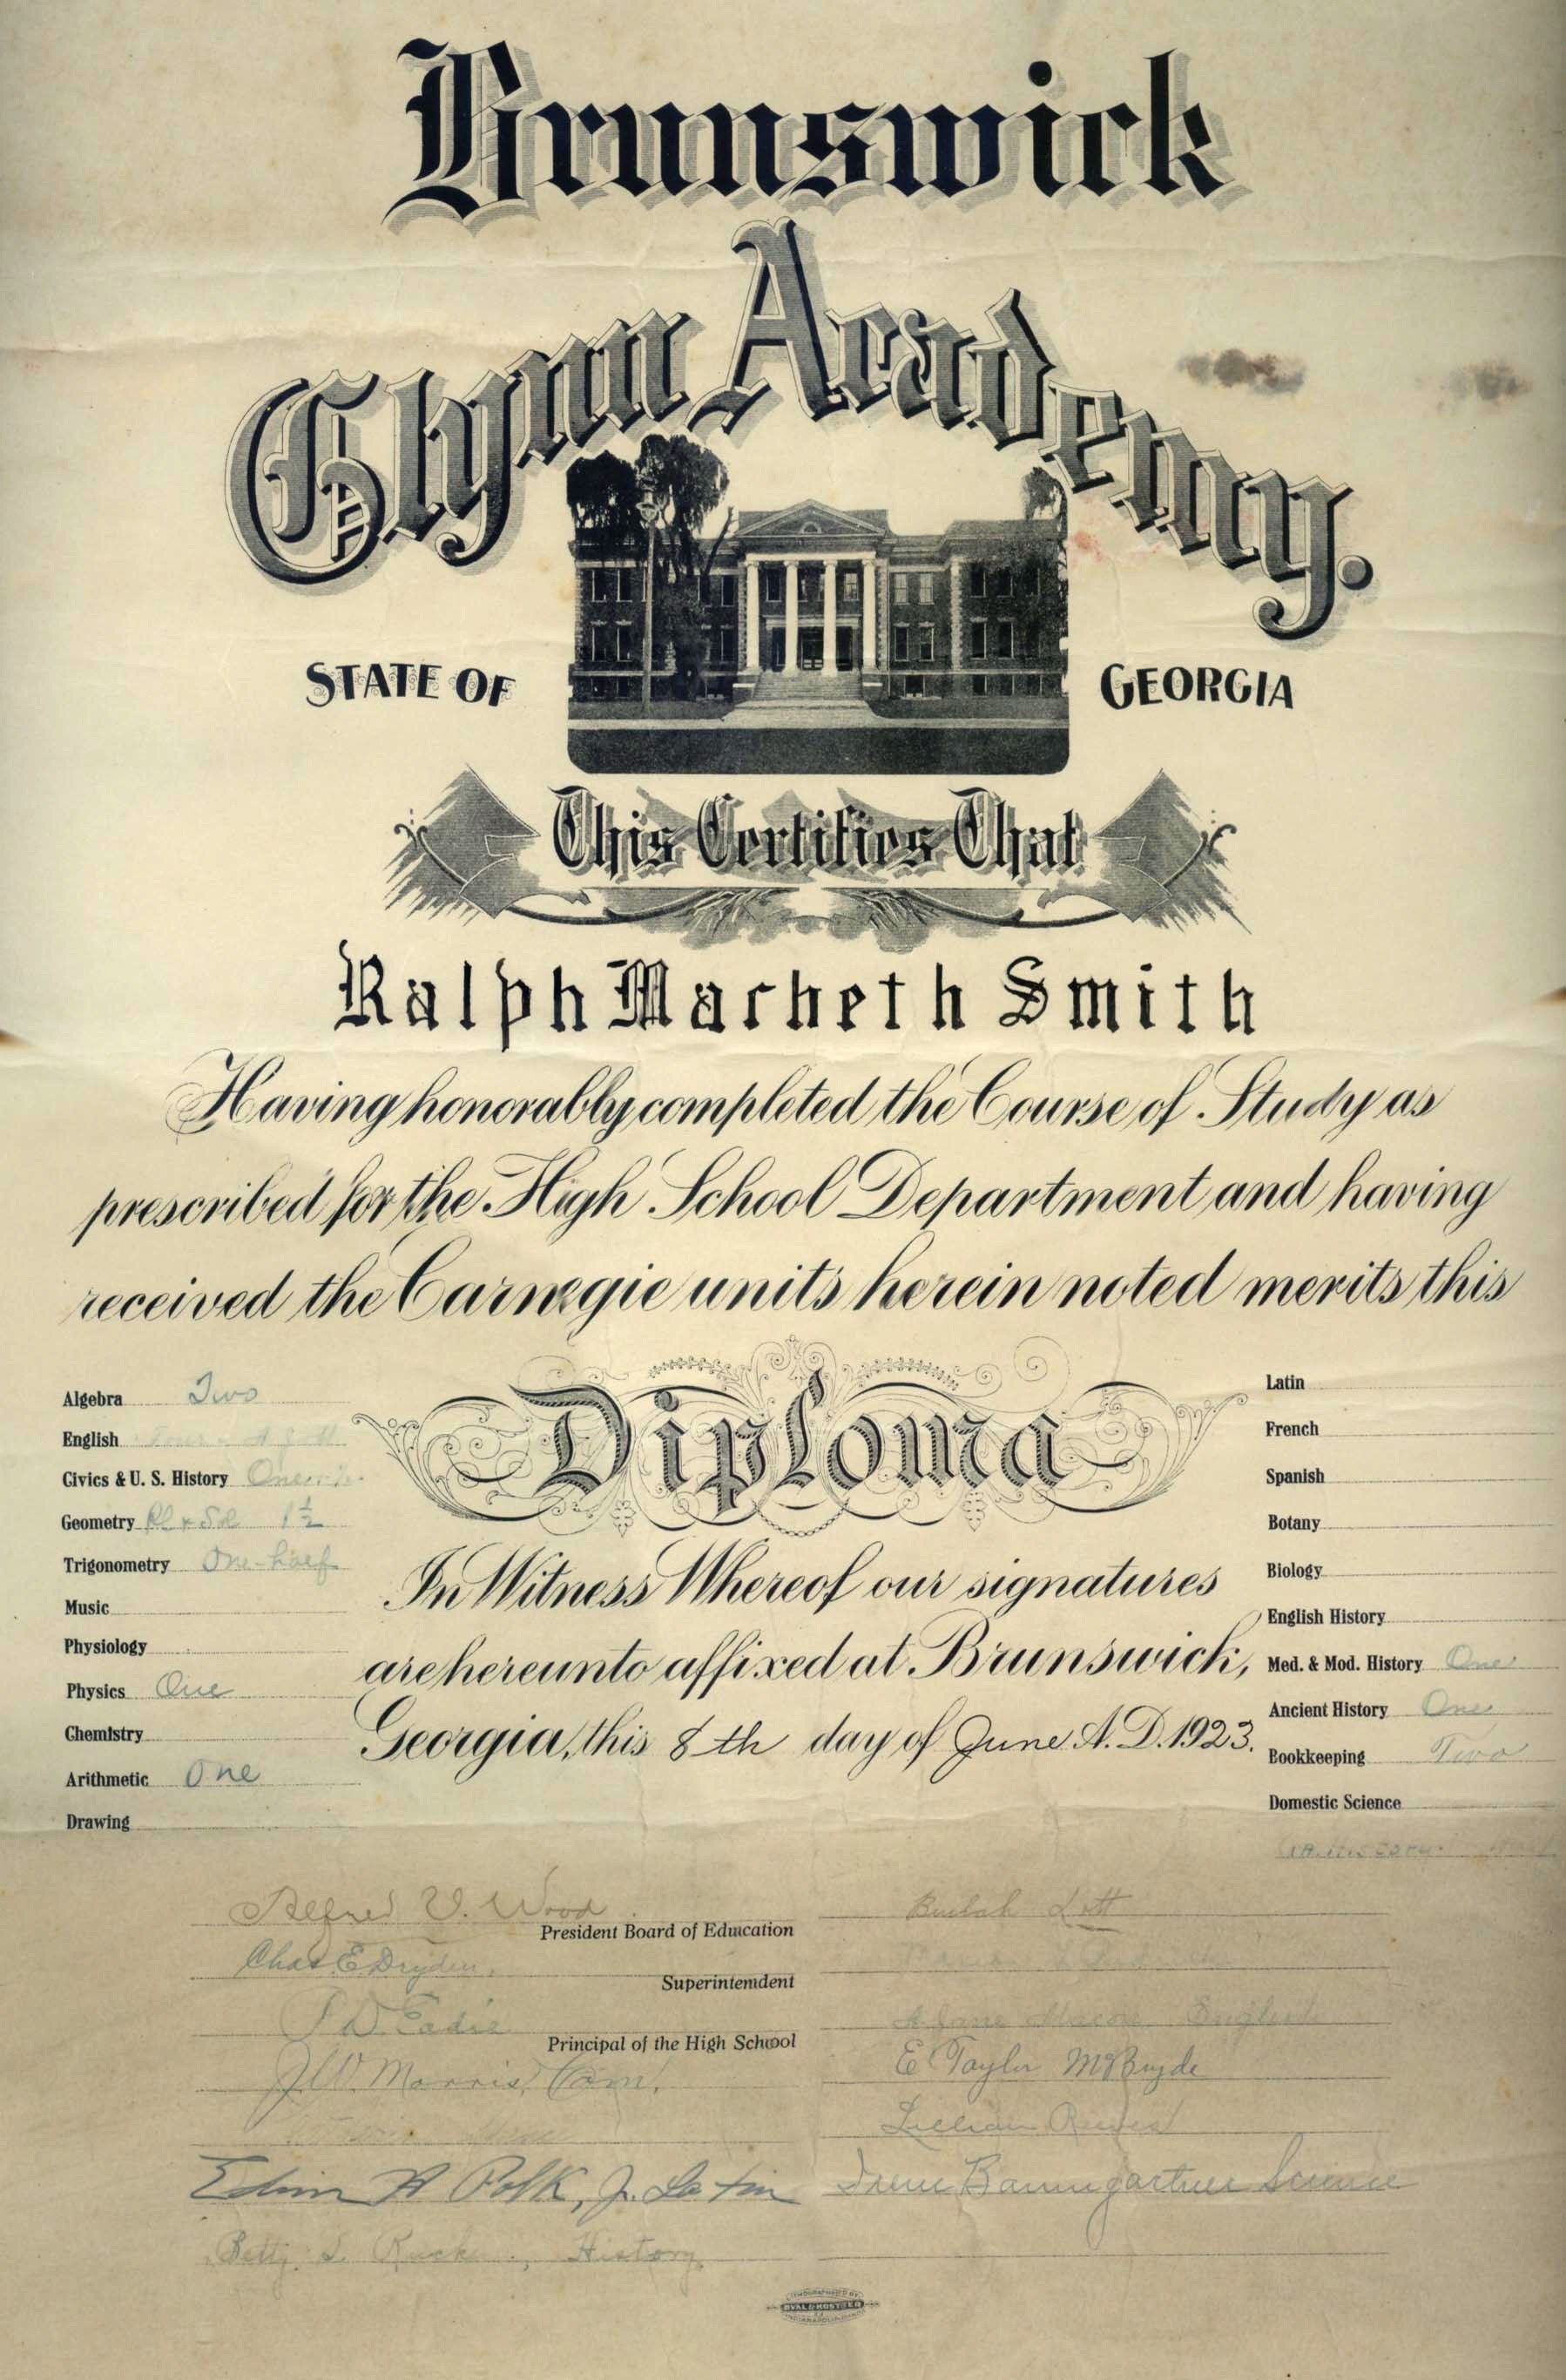 Brunswick
Glynn Academy.
STATE OF GEORGIA
This Certifies That
Ralph Macbeth Smith
Having honorably completed the Course of Study as
prescribed for the High School Department and having
received the Carnegie units herein noted merits this
Diploma
Algebra Two
English
Civics & U. S. History One
Geometry Pl & Sol 1½
Trigonometry One-half
Music
Physiology
Physics One
Chemistry
Arithmetic One
Drawing
In Witness Whereof our signatures
are hereunto affixed at Brunswick,
Georgia, this 8th day of June A. D. 1923.
Latin
French
Spanish
Botany
Biology
English History
Med. & Mod. History One
Ancient History One
Bookkeeping Two
Domestic Science
Alfred V. Wood
President Board of Education
Chas E Dryden
Superintendent
Eadie
Principal of the High School
J. W. Morris, Com.
Edwin A Polk, Jr. Latin
Betty History
Beulah Lott
Jane Macon English
E Taylor McBryde
Lillian
Irene Baumgartner Science